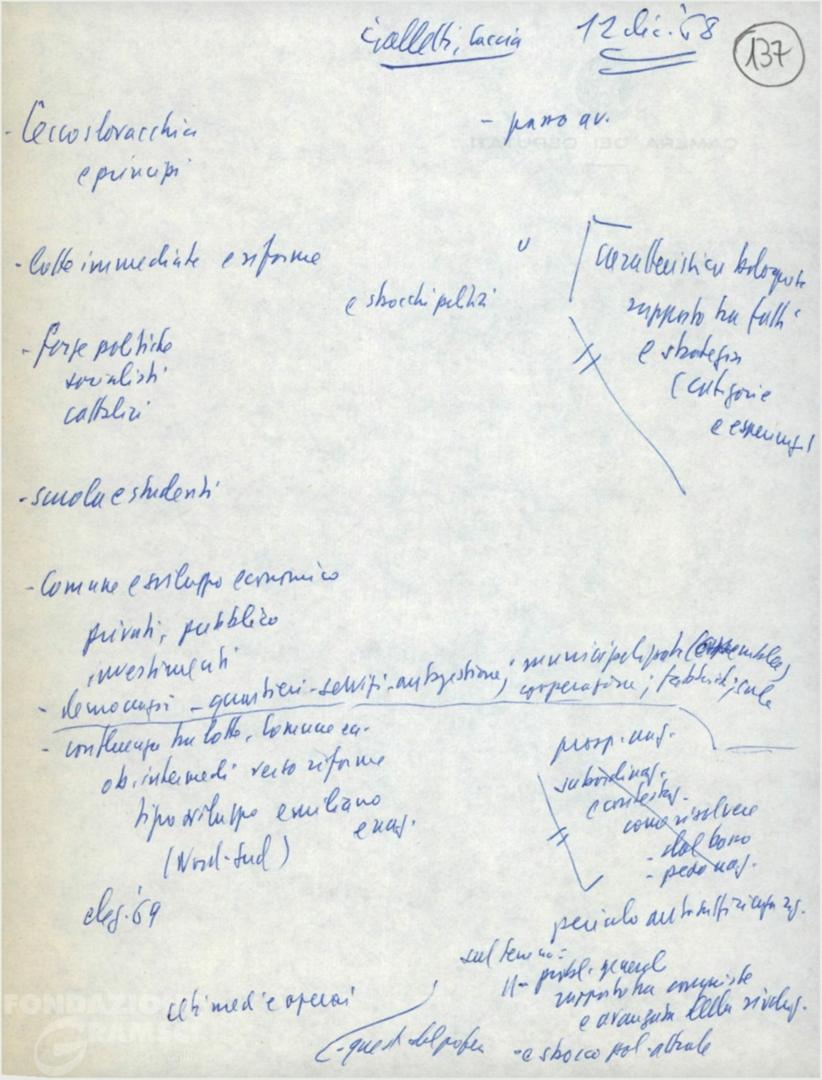 Galletti, Caccia 12 dic. '68
137
- Cecoslovacchia
e principi
- passo av.
- lotte immediate e riforme
e sbocchi politici
- forze politiche
socialisti
cattolici
caratteristica bolognese
rapporto tra fatti
e strategia
(categorie
e esperienze)
- scuola e studenti
- Comune e sviluppo economico
privati, pubblico
investimenti
- democrazia - quartieri - servizi - autogestione;
cooperazione; fabbrica; scuola
- confluenza tra lotte, Comune
ob. intermedi verso riforme
tipo sviluppo emiliano
e naz.
(Nord-Sud)
elez. '69
prosp. naz.
subordinaz.
e contestaz.
come risolvere
- dal basso
- peso naz.
pericolo autosufficienza
ceti medi e operai
probl. generali
rapporto tra
e avanzata della rivoluz.
- quest. del potere
- e sbocco pol. attuale
CAMERA DEI DEPUTATI
FONDAZIONE
GRAMSCI